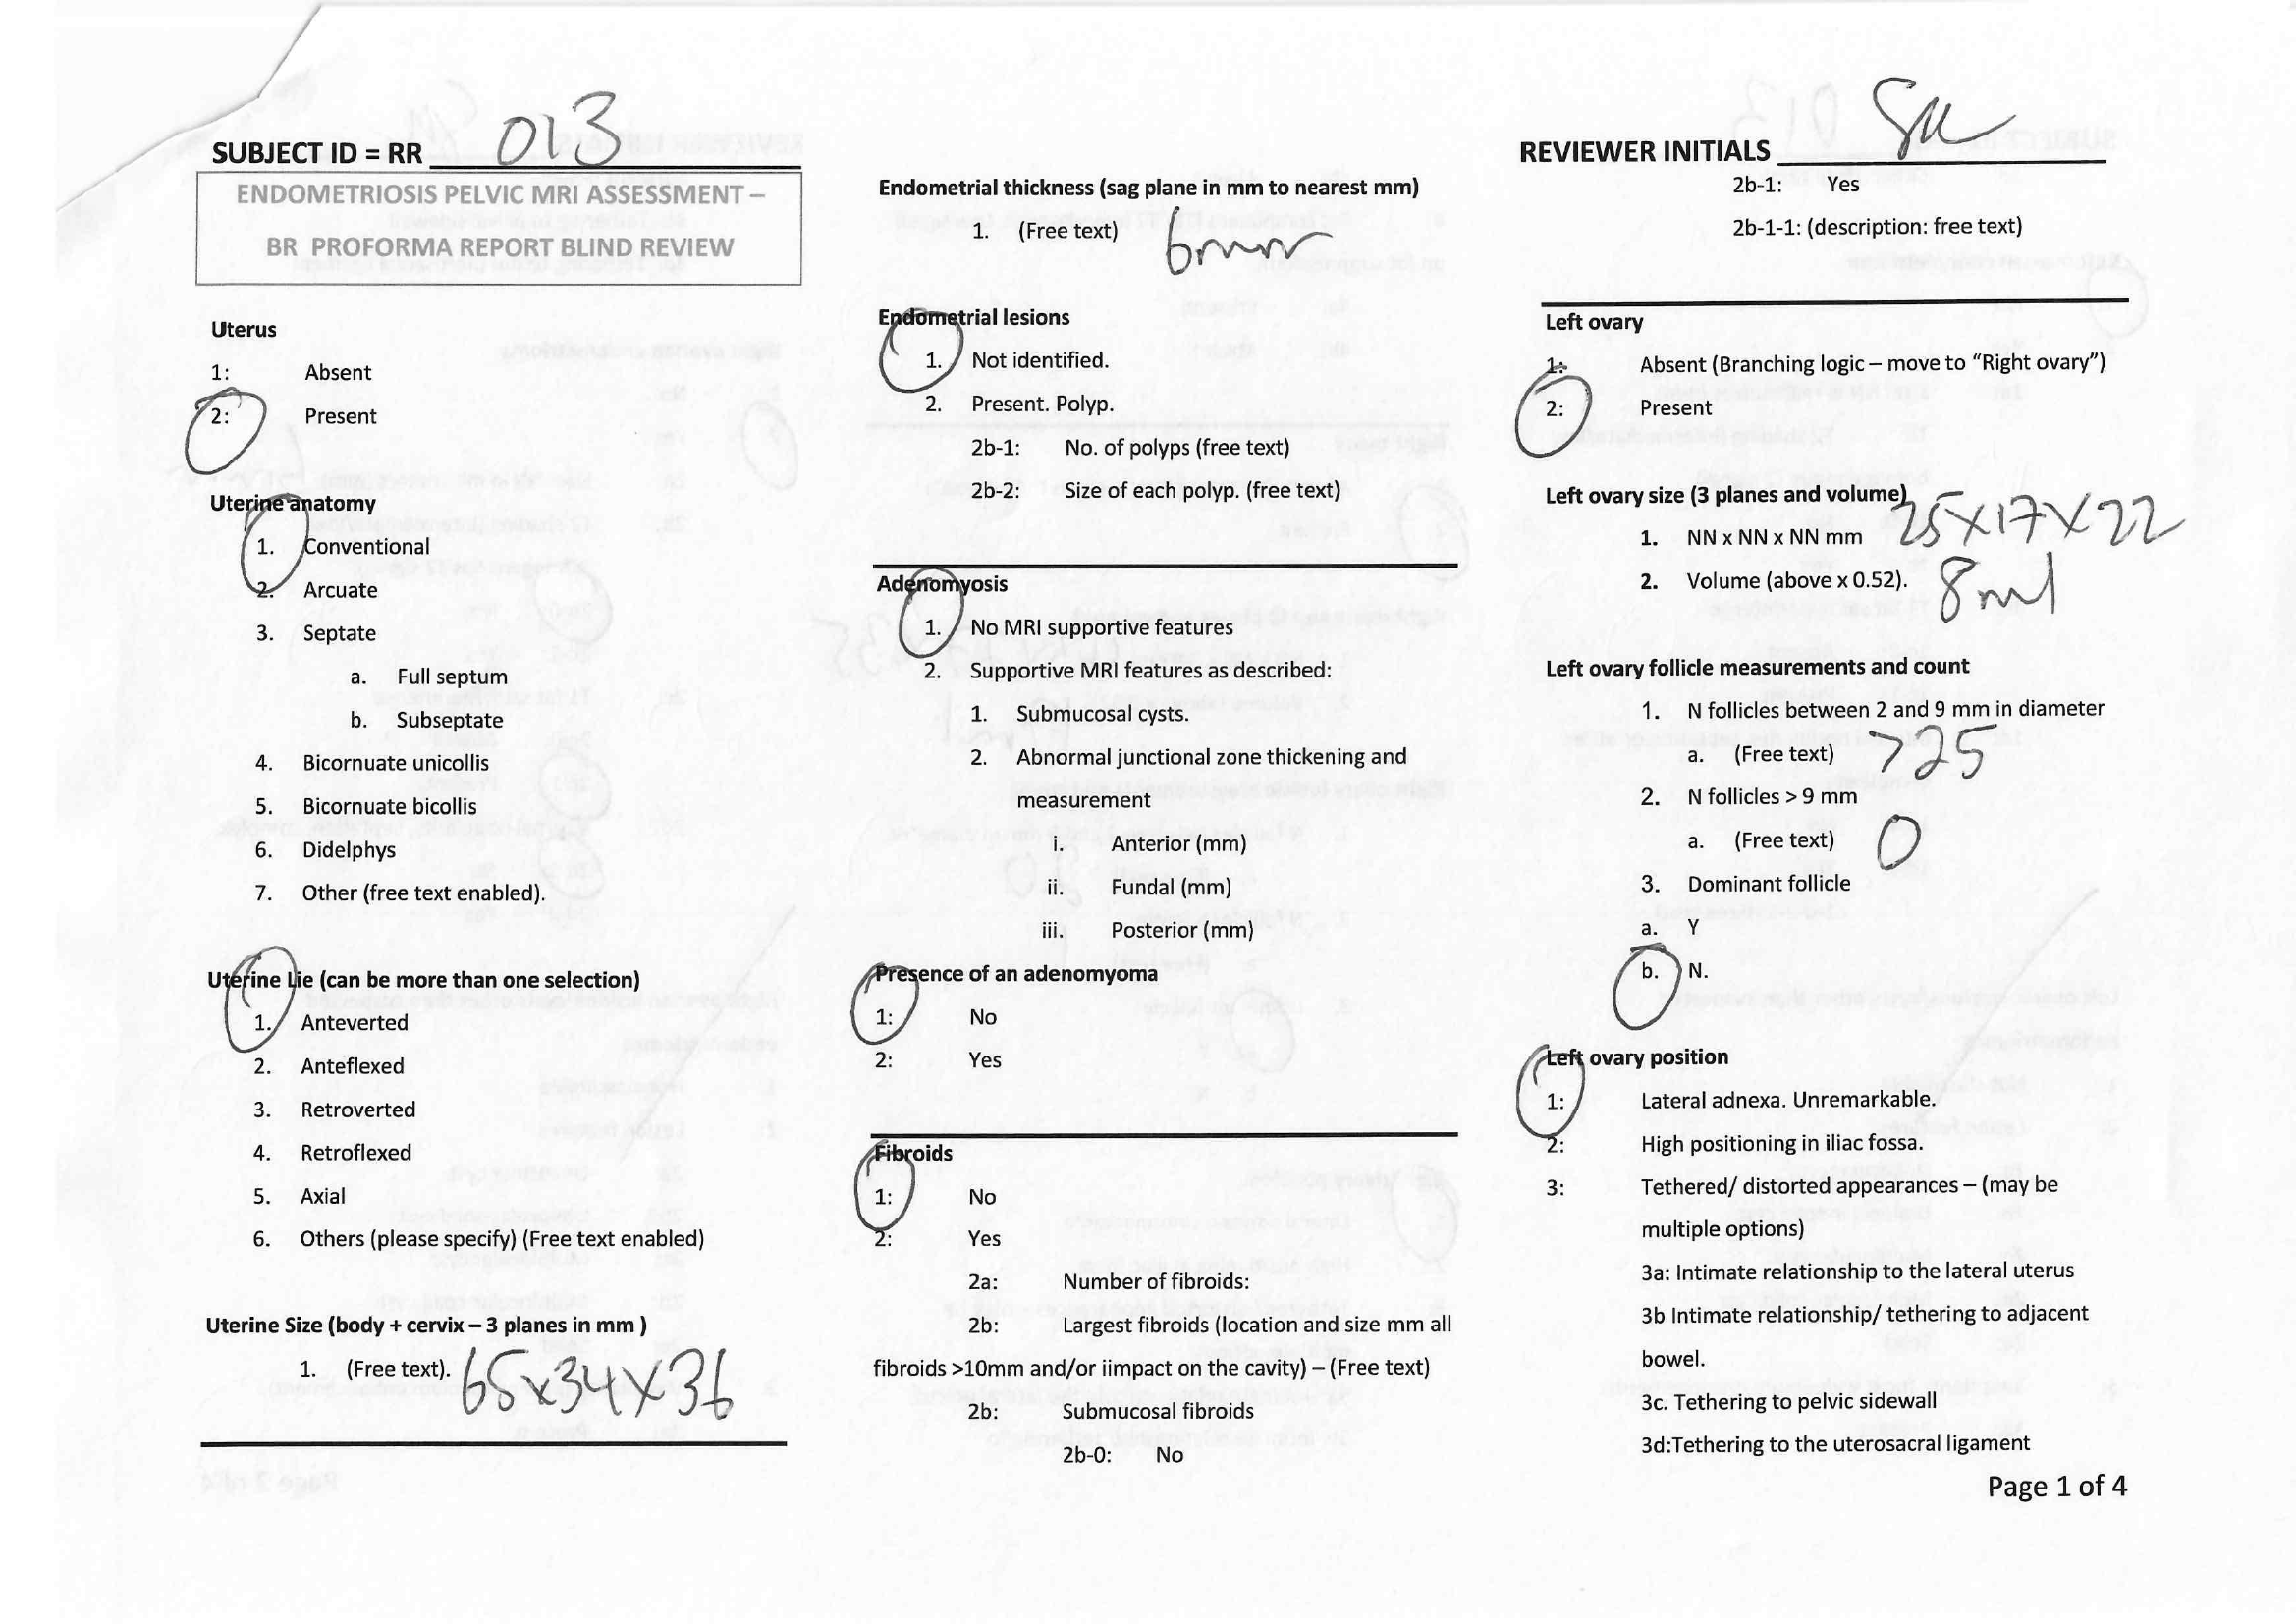 SUBJECT ID = RR 013
ENDOMETRIOSIS PELVIC MRI ASSESSMENT –
BR PROFORMA REPORT BLIND REVIEW
Uterus
1: Absent
2: Present
Uterine anatomy
1. Conventional
2. Arcuate
3. Septate
a. Full septum
b. Subseptate
4. Bicornuate unicollis
5. Bicornuate bicollis
6. Didelphys
7. Other (free text enabled).
Uterine Lie (can be more than one selection)
1. Anteverted
2. Anteflexed
3. Retroverted
4. Retroflexed
5. Axial
6. Others (please specify) (Free text enabled)
Uterine Size (body + cervix – 3 planes in mm )
1. (Free text). 65x34x36
Endometrial thickness (sag plane in mm to nearest mm)
1. (Free text) 6mm
Endometrial lesions
1. Not identified.
2. Present. Polyp.
2b-1: No. of polyps (free text)
2b-2: Size of each polyp. (free text)
Adenomyosis
1. No MRI supportive features
2. Supportive MRI features as described:
1. Submucosal cysts.
2. Abnormal junctional zone thickening and
measurement
i. Anterior (mm)
ii. Fundal (mm)
iii. Posterior (mm)
Presence of an adenomyoma
1: No
2: Yes
Fibroids
1: No
2: Yes
2a: Number of fibroids:
2b: Largest fibroids (location and size mm all
fibroids >10mm and/or iimpact on the cavity) – (Free text)
2b: Submucosal fibroids
2b-0: No
REVIEWER INITIALS
2b-1: Yes
2b-1-1: (description: free text)
Left ovary
1: Absent (Branching logic – move to “Right ovary”)
2: Present
Left ovary size (3 planes and volume)
1. NN x NN x NN mm 25x17x22
2. Volume (above x 0.52). 8ml
Left ovary follicle measurements and count
1. N follicles between 2 and 9 mm in diameter
a. (Free text) >25
2. N follicles > 9 mm
a. (Free text) 0
3. Dominant follicle
a. Y
b. N.
Left ovary position
1: Lateral adnexa. Unremarkable.
2: High positioning in iliac fossa.
3: Tethered/ distorted appearances – (may be
multiple options)
3a: Intimate relationship to the lateral uterus
3b Intimate relationship/ tethering to adjacent
bowel.
3c. Tethering to pelvic sidewall
3d:Tethering to the uterosacral ligament
Page 1 of 4